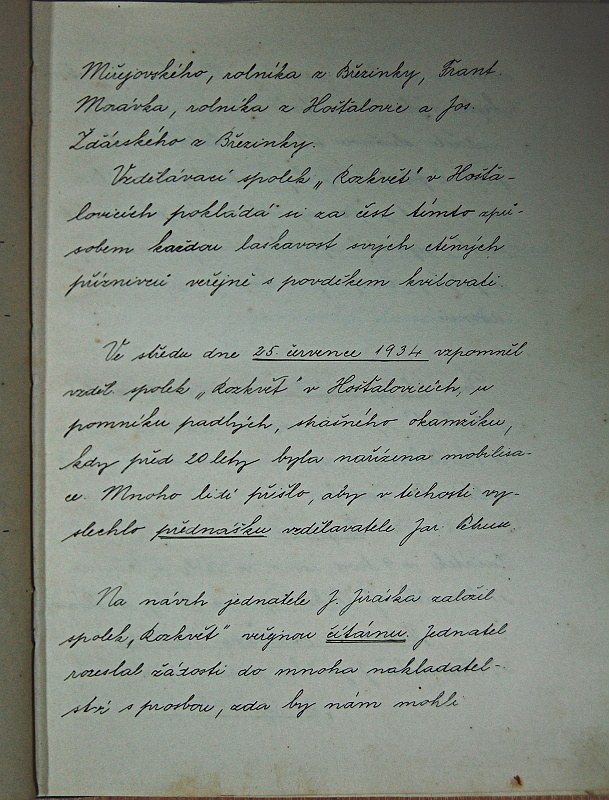 Miřejovského, rolníka z Březinky, Frant.
Morávka, rolníka z Hošťalovic a Jos.
Žďárského z Březinky.
Vzdělávací spolek „Rozkvět" v Hošťa-
lovicích pokládá si za čest tímto způ-
sobem každou laskavost svých ctěných
příznivců veřejně s povděkem kvitovati.
Ve středu dne 25. července 1934 vzpomněl
vzděl. spolek „Rozkvět" v Hošťalovicích, u
pomníku padlých, strašného okamžiku,
kdy před 20 lety byla nařízena mobilisa-
ce. Mnoho lidí přišlo, aby v tichosti vy-
slechlo přednášku vzdělavatele Jar.
Na návrh jednatele J. Jiráska založil
spolek „Rozkvět" veřejnou čítárnu. Jednatel
rozeslal žádosti do mnoha nakladatel-
ství s prosbou, zda by nám mohli